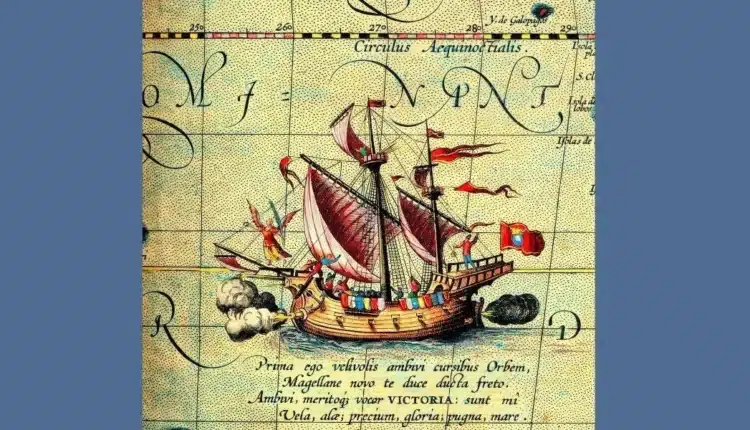 250 260 270 280 290
Y. de Galopagos
Circulus Aequinoctialis.
Isola
S. Cl
O M I = N A N T
Isola da
lobos
Isolas de
R D
Prima ego velivolis ambivi cursibus Orbem,
Magellane novo te duce ducta freto.
Ambivi, meritoq; vocor VICTORIA: sunt mi
Vela, alæ; precium, gloria; pugna, mare.